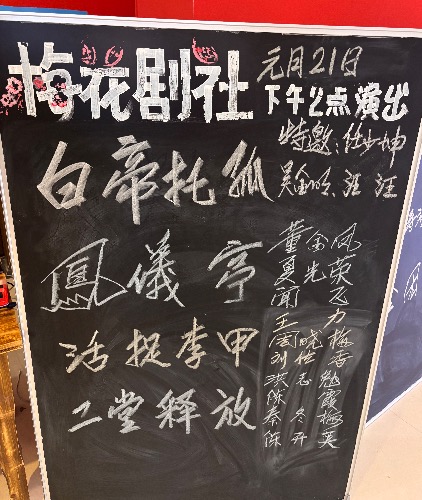 梅花剧社
元月21日
下午2点演出
白帝托孤
特邀:仕少坤
吴金玲、汪汪
鳳儀亭
董金凤
夏先荣
闻飞
活捉李甲
王力
周晓梅
刘仕香
洪志勉
二堂释放
陈霞
秦冬梅
陈开英